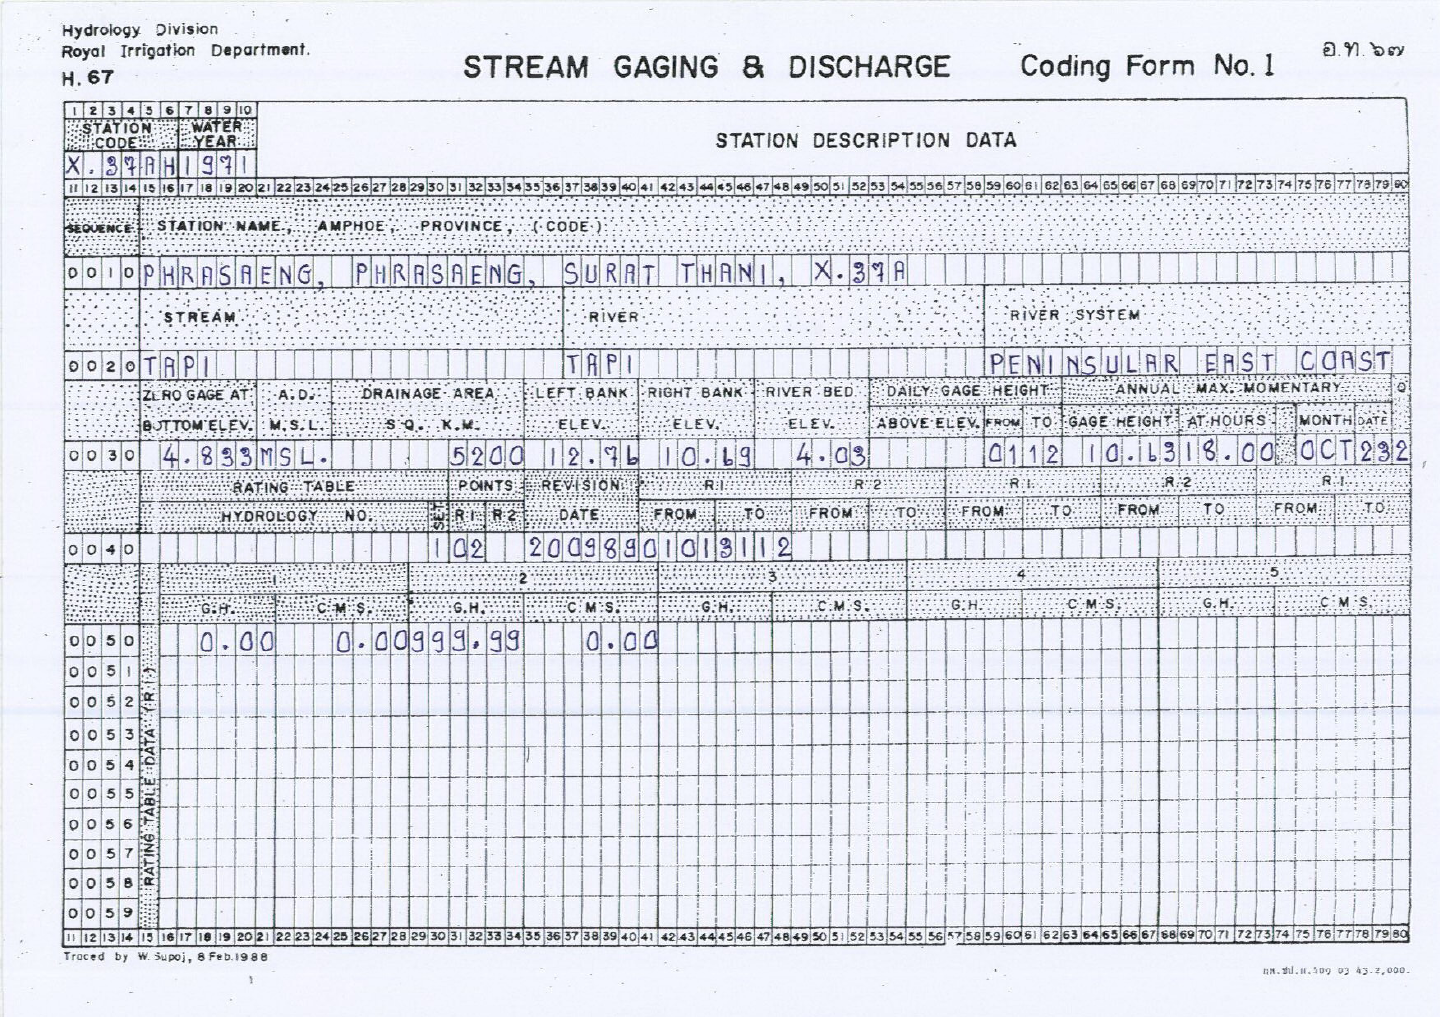 Hydrology Division
Royal Irrigation Department.
H. 67
STREAM GAGING & DISCHARGE Coding Form No. 1
อ.ท. ๖๗
1 2 3 4 5 6 7 8 9 10
STATION CODE WATER YEAR
STATION DESCRIPTION DATA
X.37AH1971
11 12 13 14 15 16 17 18 19 20 21 22 23 24 25 26 27 28 29 30 31 32 33 34 35 36 37 38 39 40 41 42 43 44 45 46 47 48 49 50 51 52 53 54 55 56 57 58 59 60 61 62 63 64 65 66 67 68 69 70 71 72 73 74 75 76 77 78 79 80
SEQUENCE STATION NAME, AMPHOE, PROVINCE, (CODE)
0010 PHRASAENG, PHRASAENG, SURAT THANI, X.37A
STREAM RIVER RIVER SYSTEM
0020 TAPI TAPI PENINSULAR EAST COAST
ZERO GAGE AT A.D. DRAINAGE AREA LEFT BANK RIGHT BANK RIVER BED DAILY GAGE HEIGHT ANNUAL MAX. MOMENTARY
BOTTOM ELEV. M.S.L. SQ. K.M. ELEV. ELEV. ELEV. ABOVE ELEV. FROM TO GAGE HEIGHT AT HOURS MONTH DATE
0030 4.833MSL. 5200 12.76 10.69 4.03 0112 10.6318.00 OCT232
RATING TABLE POINTS REVISION R1 R2 R1 R2 R1
HYDROLOGY NO. SET R1 R2 DATE FROM TO FROM TO FROM TO FROM TO FROM TO
0040 102 20098901013112
1 2 3 4 5
G.H. C.M.S. G.H. C.M.S. G.H. C.M.S. G.H. C.M.S. G.H. C.M.S.
0050 0.00 0.00999.99 0.00
0051
0052
0053
0054
0055
0056
0057
0058
0059
RATING TABLE DATA (R1)
11 12 13 14 15 16 17 18 19 20 21 22 23 24 25 26 27 28 29 30 31 32 33 34 35 36 37 38 39 40 41 42 43 44 45 46 47 48 49 50 51 52 53 54 55 56 57 58 59 60 61 62 63 64 65 66 67 68 69 70 71 72 73 74 75 76 77 78 79 80
Traced by W. Supoj, 8 Feb. 1988